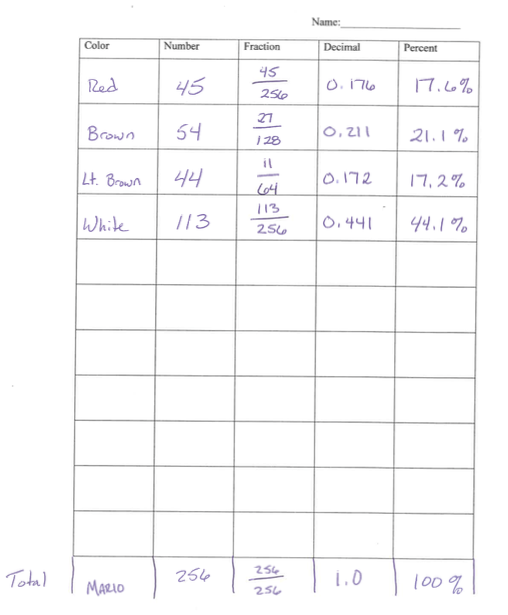 Name:
Color Number Fraction Decimal Percent
Red 45 45/256 0.176 17.6%
Brown 54 27/128 0.211 21.1%
Lt. Brown 44 11/64 0.172 17.2%
White 113 113/256 0.441 44.1%
Total MARIO 256 256/256 1.0 100%